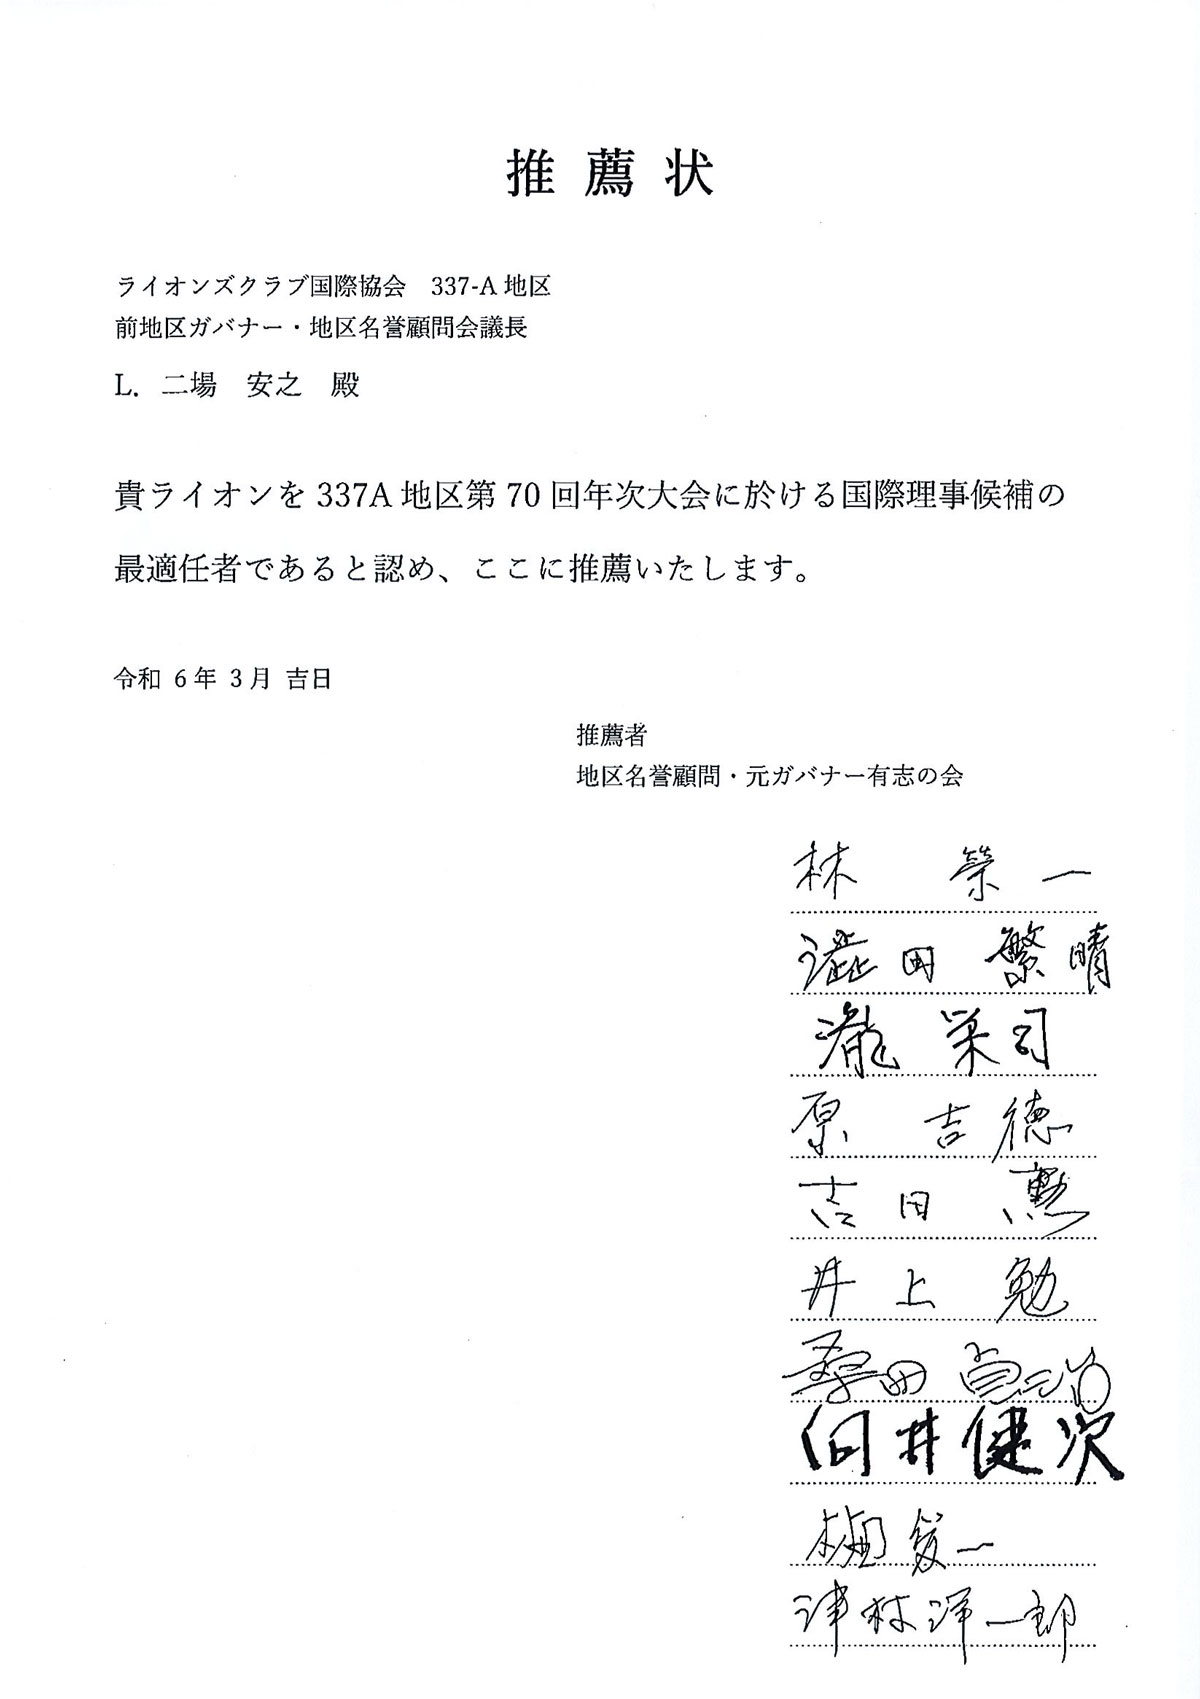 推薦状
ライオンズクラブ国際協会　337-A 地区
前地区ガバナー・地区名誉顧問会議長
L．二場　安之　殿
貴ライオンを 337A 地区第 70 回年次大会に於ける国際理事候補の
最適任者であると認め、ここに推薦いたします。
令和 6 年 3 月 吉日
推薦者
地区名誉顧問・元ガバナー有志の会
林　榮一
澁田　繁晴
瀧　栄司
原　吉德
吉田　勲
井上　勉
桑田
向井健次
一
津村洋一郎